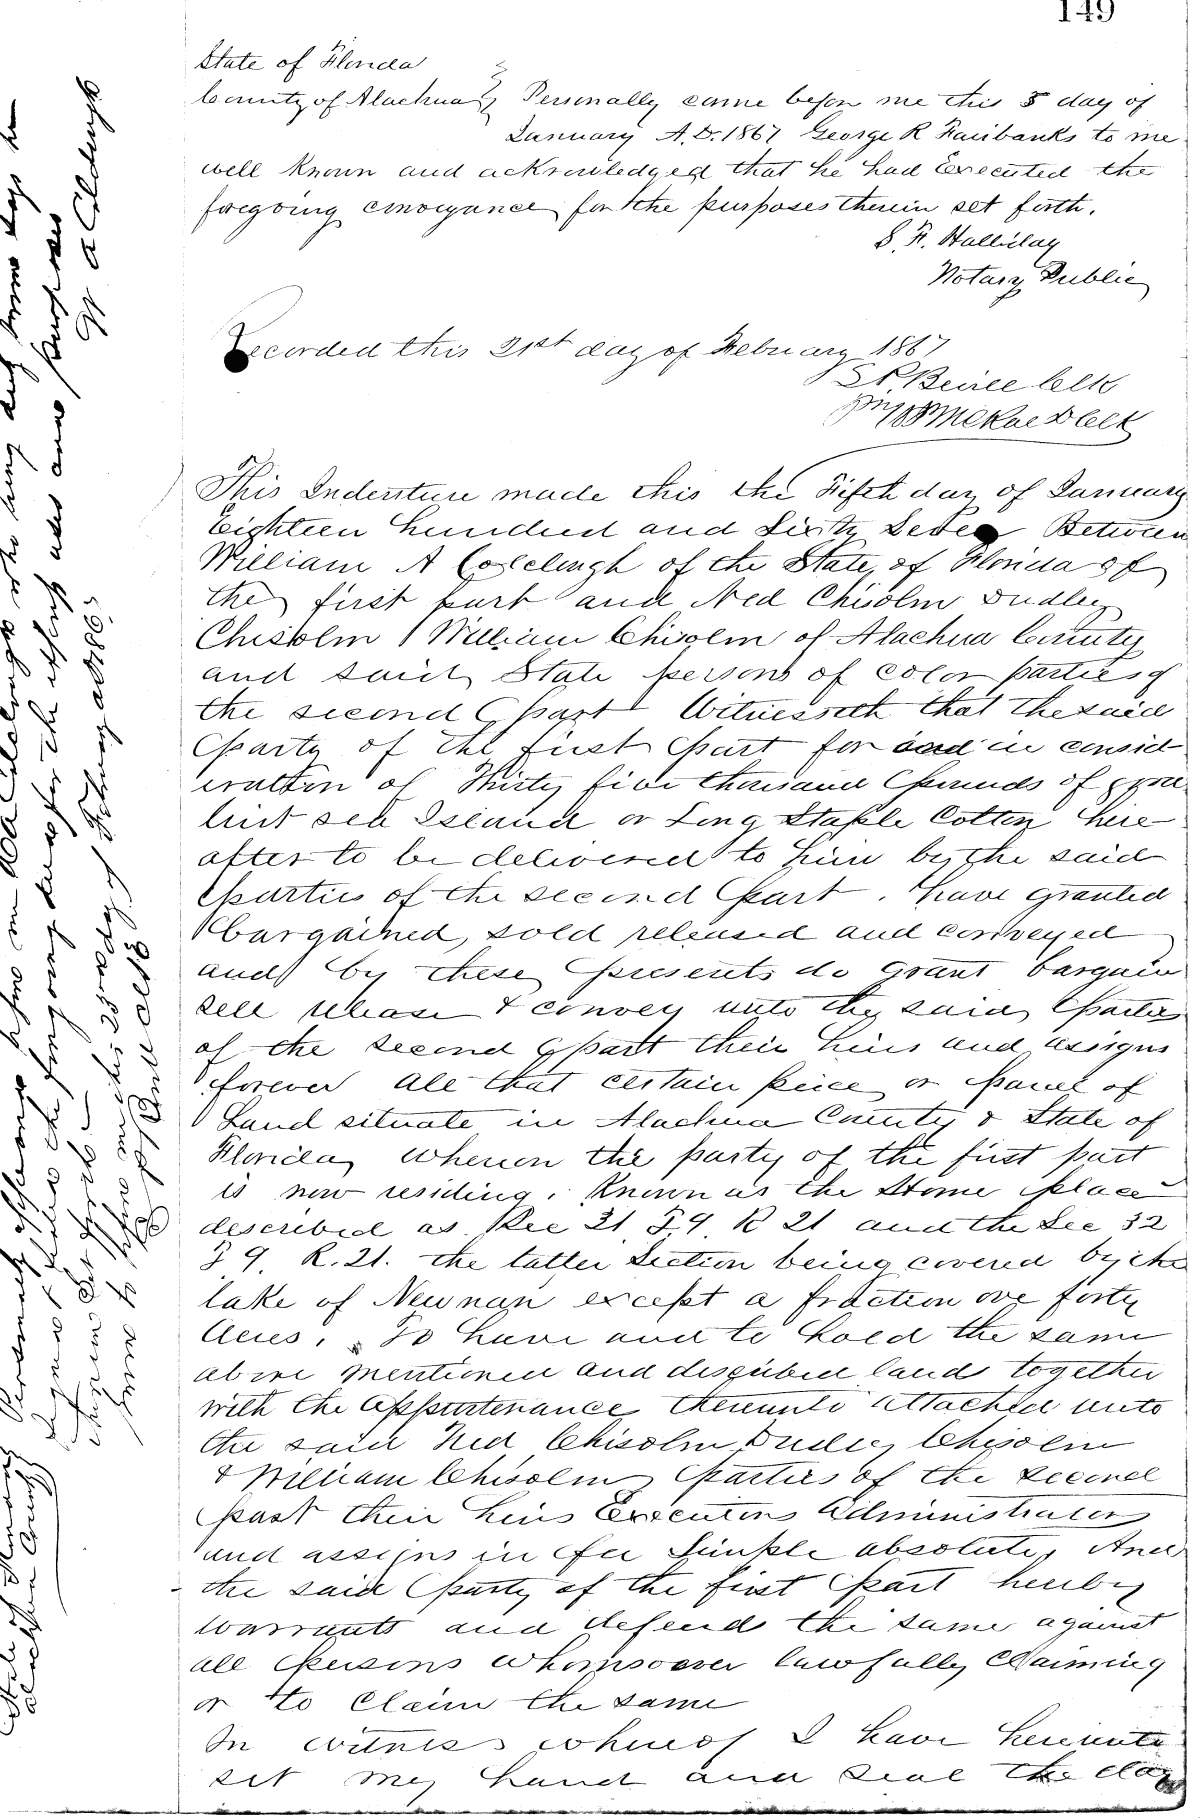 149
State of Florida
County of Alachua } Personally came before me this 5 day of
January A.D. 1867 George R Fairbanks to me
well known and acknowledged that he had Executed the
foregoing conveyance for the purposes therein set forth.
S. F. Halliday
Notary Public
Recorded this 21st day of February 1867
Clk
McRae D Clk
This Indenture made this the Fifth day of January
Eighteen hundred and Sixty Seven Between
William A Coldclough of the State of Florida of
the first part and Ned Chisolm Dudley
Chisolm & William Chisolm of Alachua County
and said State persons of color parties of
the second part Witnesseth that the said
party of the first part for and in consid
eration of Thirty five thousand pounds of good
lint sea Island or Long Staple Cotton here
after to be delivered to him by the said
parties of the second part. have granted
bargained, sold released and conveyed
and by these presents do grant bargain
sell release & convey unto the said parties
of the second part their heirs and assigns
forever all that certain piece or parcel of
Land situate in Alachua County & State of
Florida, whereon the party of the first part
is now residing. Known as the Home place
described as Sec 31 T.9 R 21 and the Sec 32
T 9. R. 21. the latter Section being covered by the
lake of Newnan except a fraction ove forty
Acres. To have and to hold the same
above mentioned and discribed lands together
with the appurtenances thereunto attached unto
the said Ned Chisolm, Dudley Chisolm
& William Chisolm parties of the second
part their heirs Executors Administrators
and assigns in fee Simple absolute, And
the said party of the first part hereby
warrants and defend the same against
all persons whomsoever lawfully Claiming
or to Claim the same
In witness whereof I have hereunto
set my hand and seal the day
State of Florida
Alachua County } Personally appeared before me W A Coldclough who being duly sworn says he
signed & sealed the foregoing deed for the uses and purposes
therein set forth — W A Coldclough
Sworn to before me this 23rd day of February AD 186
Clk